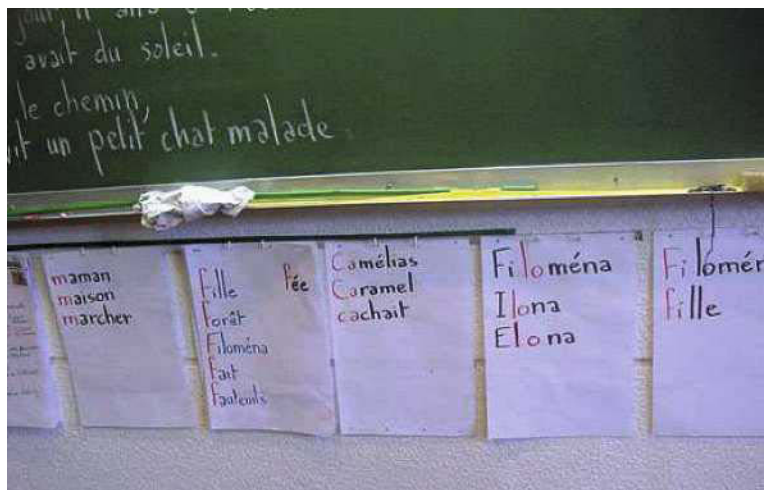 avait du soleil.
le chemin,
un petit chat malade
maman
maison
marcher
fille fée
forêt
Filoména
fait
fauteuils
Camélias
Caramel
cachait
Filoména
Ilona
Elona
fille